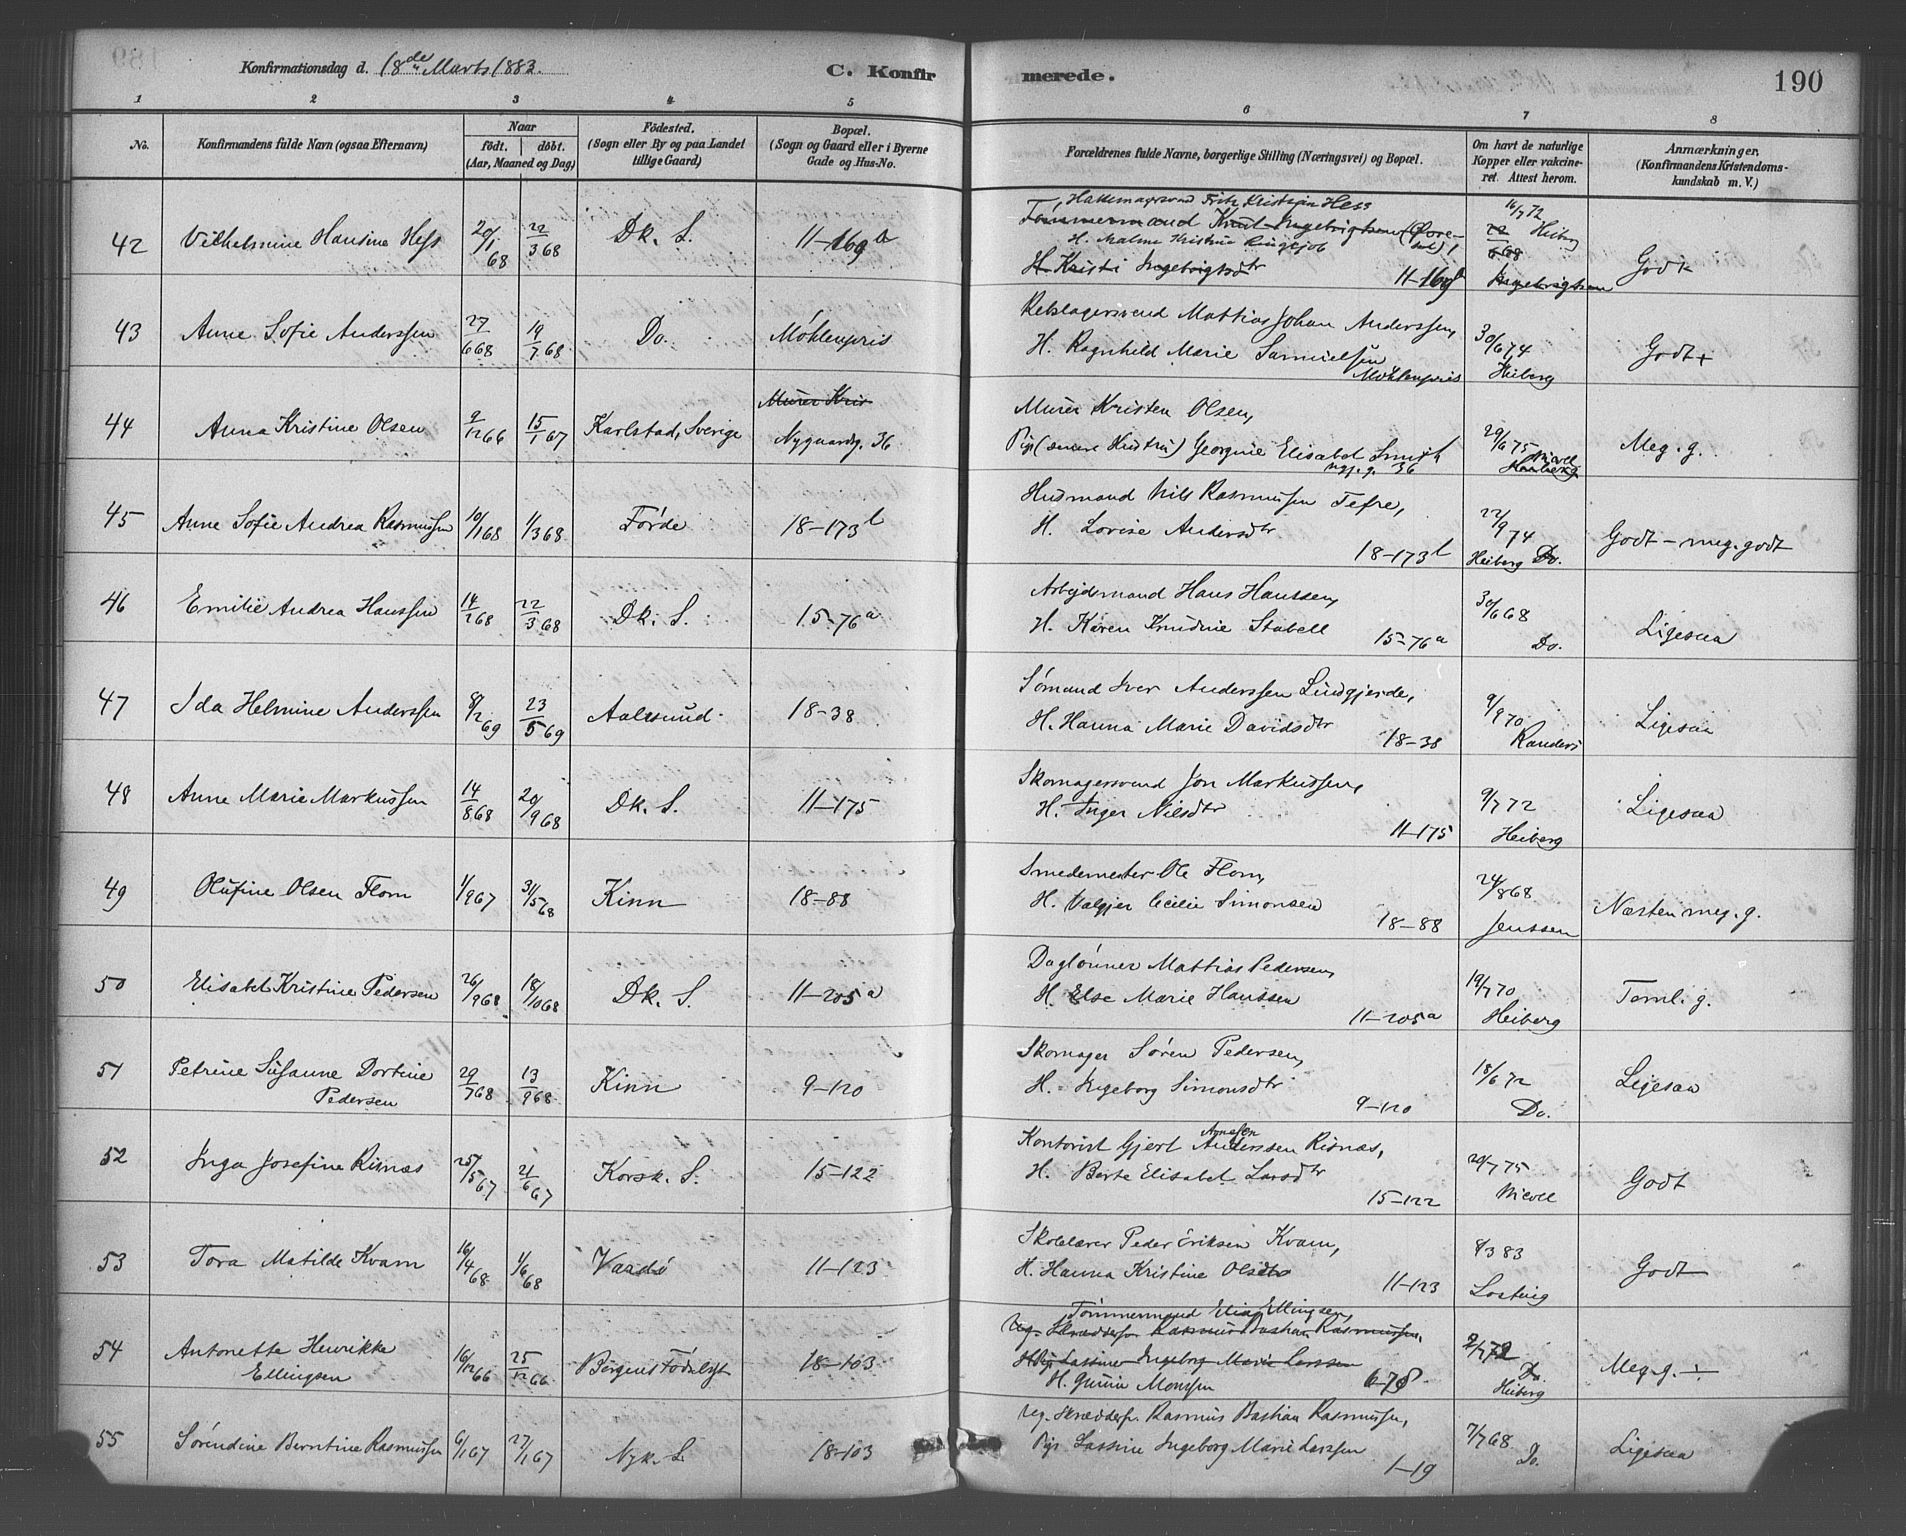 Konfirmationsdag d. 18de Marts 1883.
C. Konfirmerede.
190
1 2 3 4 5 6 7 8
No.
Konfirmandens fulde Navn (ogsaa Efternavn)
Naar
födt. döbt.
(Aar, Maaned og Dag)
Födested.
(Sogn eller By og paa Landet
tillige Gaard)
Bopæl.
(Sogn og Gaard eller i Byerne
Gade og Hus-No.
Forældrenes fulde Navne, borgerlige Stilling (Næringsvei) og Bopæl.
Om havt de naturlige
Kopper eller vakcine-
ret. Attest herom.
Anmærkninger,
(Konfirmandens Kristendoms-
kundskab m. V.)
42 Vilhelmine Hansine Hess 20/1 68 22/3 68 Dk. S. 11-169a
Hattemagersvend Fritz Kristian Hess
Tømmermand Knut Ingebrigtsen
H. Malene Kristine Ringsjøb
H. Kristi Ingebrigtsdtr 11-169 16/7 72 Heiberg Godt
43 Anne Sofie Anderssen 27/6 68 19/7 68 Do. Möhlenpris
Rebslagersvend Mattias Johan Anderssen,
H. Ragnhild Marie Samuelsen Möhlenpris 30/6 74 Heiberg Godt+
44 Anna Kristine Olsen 9/12 66 15/1 67 Karlstad, Sverige Murer Kris Nygaardsg. 36
Murer Kristen Olsen,
Pige (senere Hustru) Georgine Elisabet Smith nyg.g. 36 29/6 75 Nicoll Meg. g.
45 Anne Sofie Andrea Rasmussen 10/1 68 1/3 68 Førde 18-173b
Husmand Nils Rasmussen Tefre,
H. Lovise Andersdtr 18-173b 22/9 74 Heiberg Do. Godt - meg. godt
46 Emilie Andrea Hanssen 14/2 68 22/3 68 Dk. S. 15-76a
Arbejdsmand Hans Hanssen,
H. Karen Knudine Stabell 15-76a 30/6 68 Do. Ligesaa
47 Ida Helmine Anderssen 8/2 69 23/5 69 Aalesund. 18-38
Sømand Iver Anderssen Lindgjerde,
H. Hanna Marie Davidsdtr 18-38 9/9 70 Randers Ligesaa
48 Anne Marie Markussen 14/8 68 20/9 68 Dk. S. 11-175
Skomagersvend Jon Markussen,
H. Inger Nilsdtr 11-175 9/7 72 Heiberg Ligesaa
49 Olufine Olsen Flom 1/9 67 31/5 68 Kinn 18-88
Smedemester Ole Flom,
H. Valgjer Cecilie Simonsen 18-88 24/8 68 Jenssen Næsten meg. g.
50 Elisabet Kristine Pedersen 26/9 68 18/10 68 Dk. S. 11-205a
Daglønner Mattias Pedersen,
H. Else Marie Hanssen 11-205a 19/7 70 Heiberg Temli. g.
51 Petrine Susanne Dortine
Pedersen 29/7 68 13/9 68 Kinn 9-120
Skomager Søren Pedersen,
H. Ingeborg Simonsdtr 9-120 18/6 72 Do. Ligesaa
52 Inga Josefine Risnæs 25/5 67 21/6 67 Korsk. S. 15-122
Kontorist Gjert Anderssen Risnæs,
H. Berte Elisabet Larsdtr 15-122 20/7 75 Nicoll Godt
53 Tora Matilde Kvam 16/4 68 1/6 68 Vardö 11-123
Skolelærer Peder Eriksen Kvam,
H. Hanna Kristine Olsdtr 11-123 8/3 83 Lostvig Godt
54 Antonetta Henrikke
Ellingsen 16/12 66 25/12 66 Bergens Födselsst 18-103
Tömmermand Elias Ellingsen,
Ug. Skrædders. Rasmus Bastian Rasmussen,
Pige Lassine Ingeborg Marie Larssen
H. Gurine Monsen 6-78 2/7 72 Do. Heiberg Meg. g. ÷
55 Sørendine Berntine Rasmussen 6/1 67 27/1 67 Nyk. S. 18-103
Ug. Skrædders. Rasmus Bastian Rasmussen,
Pige Lassine Ingeborg Marie Larssen 1-19 7/7 68 Do. Ligesaa